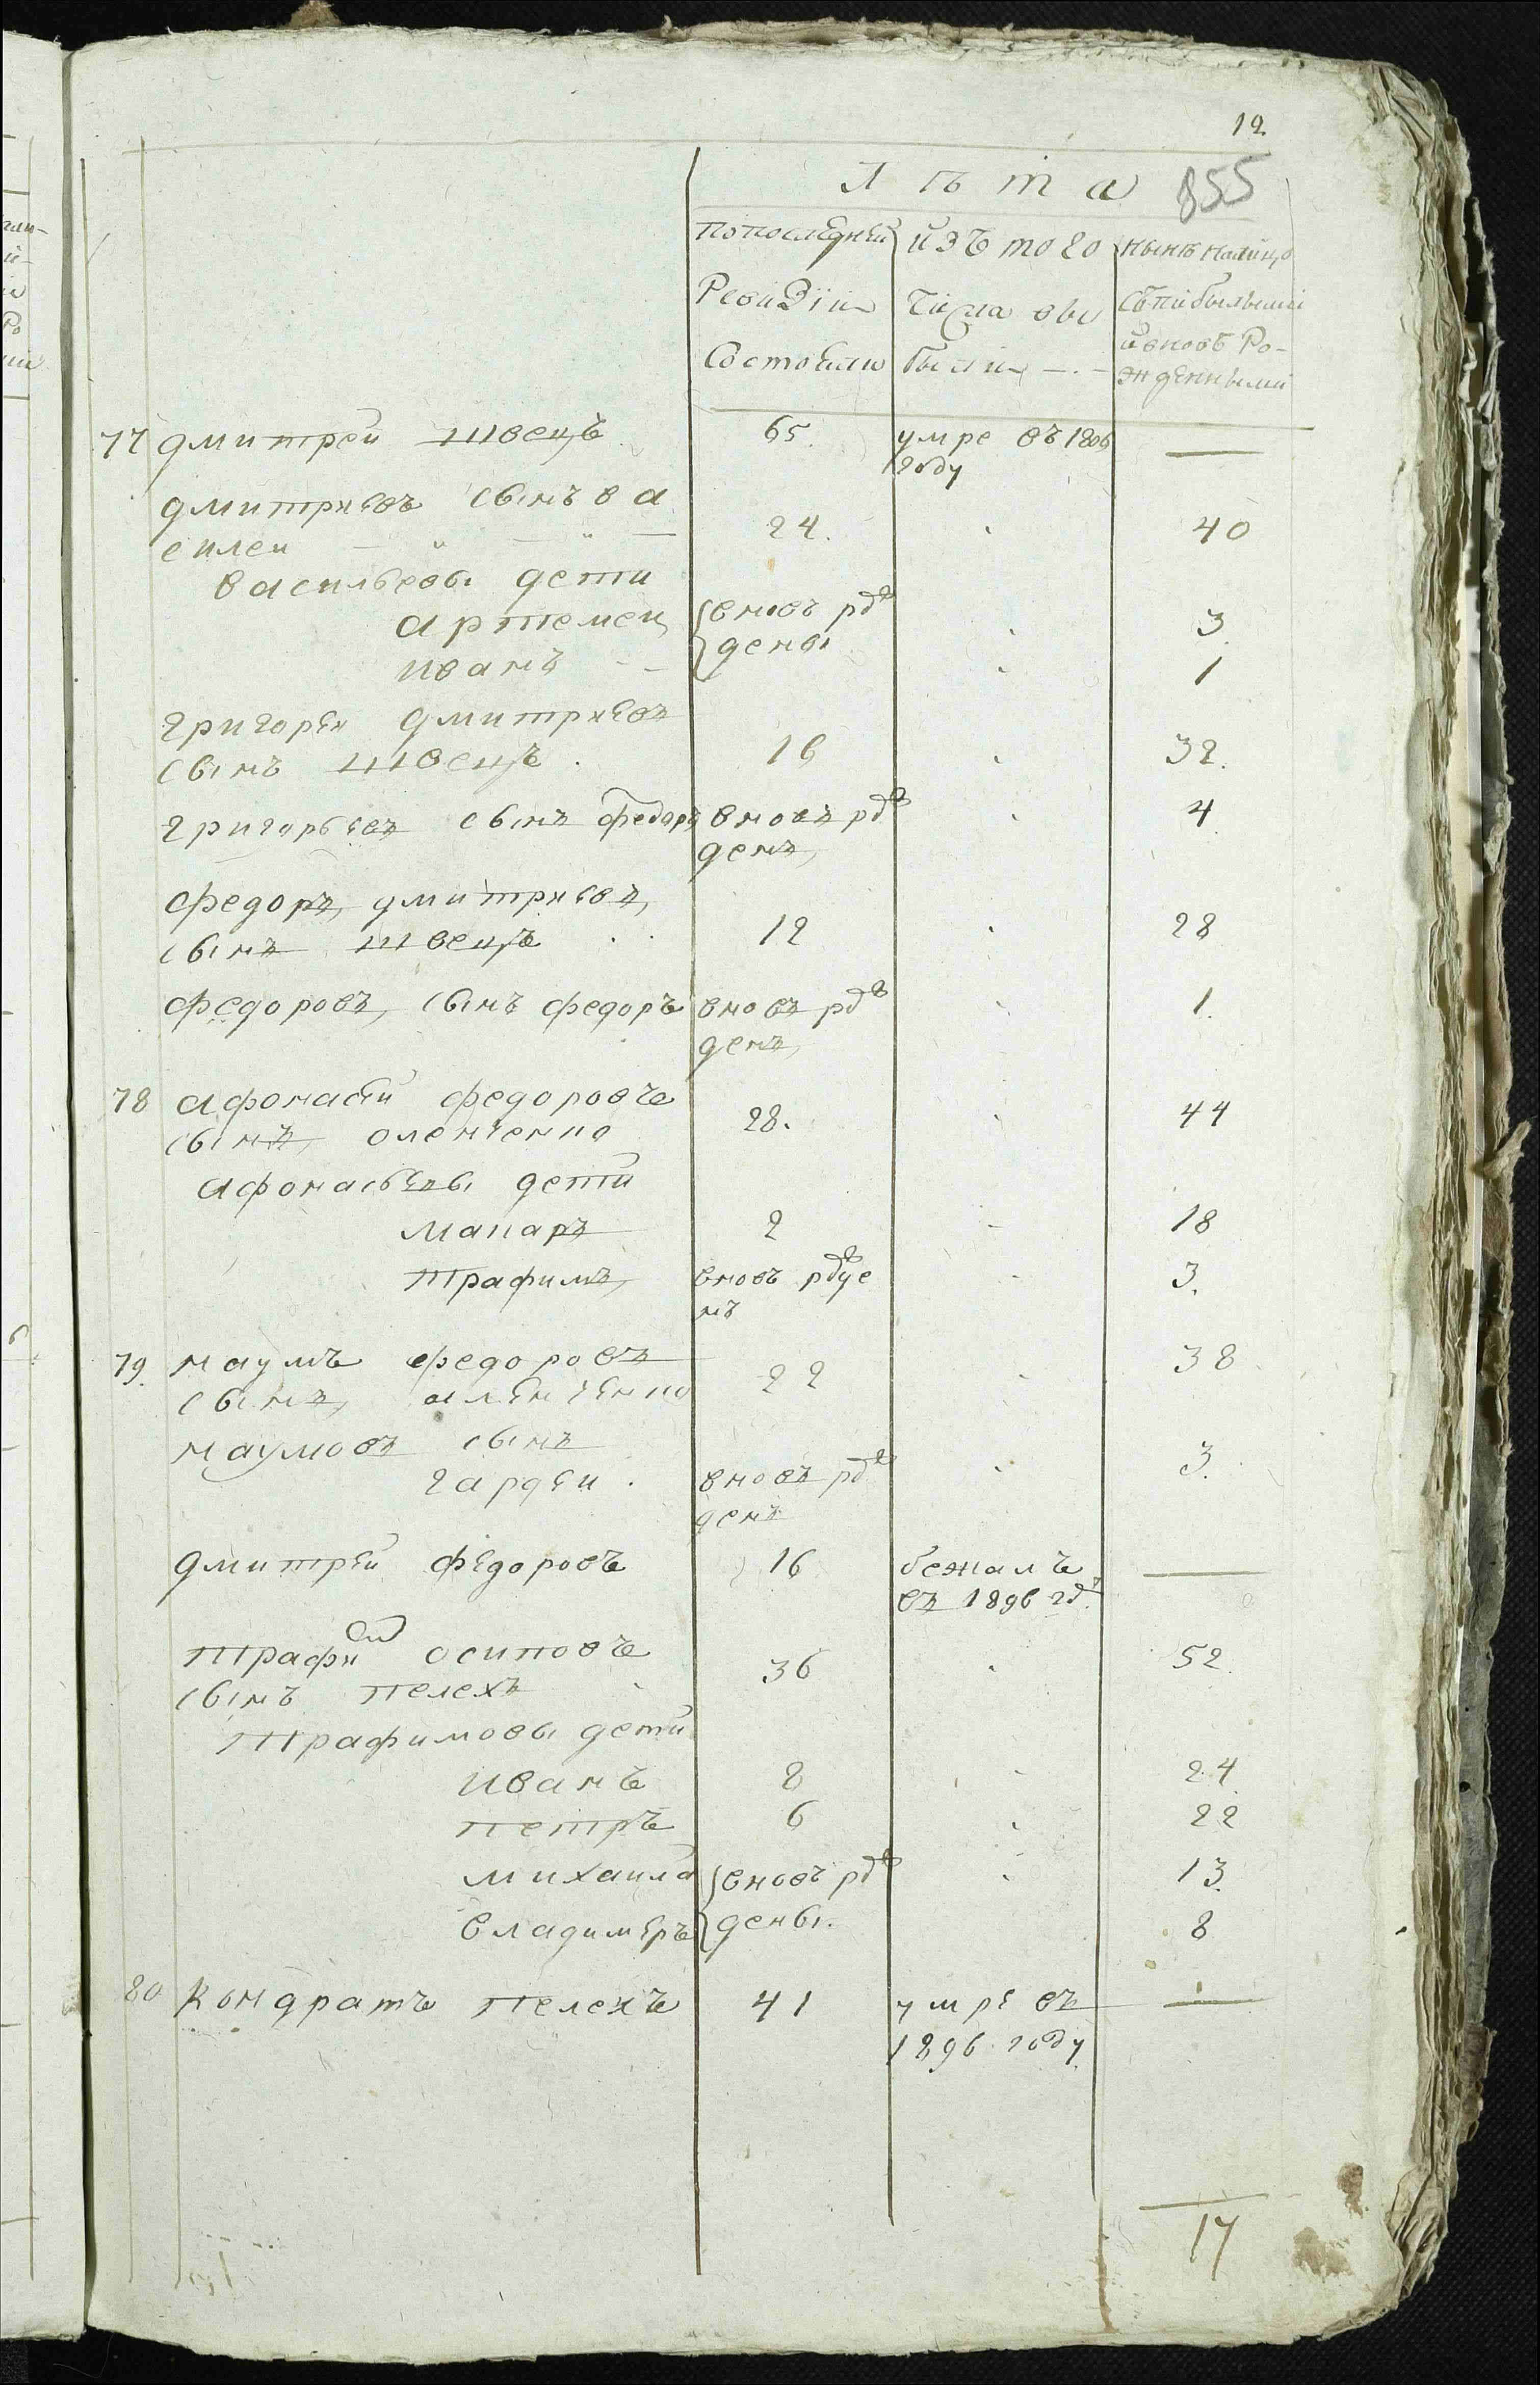 12
Лѣта 855
По последней | изъ того | ныне налицо
Ревизіи | числа вы | с прибылыми
Состояли | были | и вновь Ро-
жденными
77 Дмитрей Швецъ 65. умре въ 1806 —
году
Дмитриевъ сынъ ва
силей — " — " — 24. 40
Васильевы дети
Артемей вновь рож 3
Иванъ — дены 1
Григорей Дмитриевъ
сынъ Швецъ . 16 32.
Григорьевъ сынъ Федоръ вновъ рож 4
денъ
Федоръ Дмитриевъ
сынъ Швецъ . . 12 28
Федоровъ сынъ Федоръ вновъ рож 1.
денъ
78 Афонасей Федоровъ
сынъ Оленченко 28. 44
Афонасьевы дети
Макаръ 2 18
Трафимъ вновъ рожде 3.
нъ
79. Наумъ Федоровъ 38
сынъ Аленченко 22
Наумовъ сынъ
Гардей . вновъ рож 3.
денъ
Дмитрей Федоровъ 16 бежалъ —
въ 1896 год
Трафим Осиповъ
сынъ Пелехъ 36 52.
Трафимовы дети
Иванъ 8 24
Петръ 6 22
Михаила вновъ рож 13
Владимеръ дены. 8
80 Кондратъ Пелехъ 41 умре въ —
1896 году
17